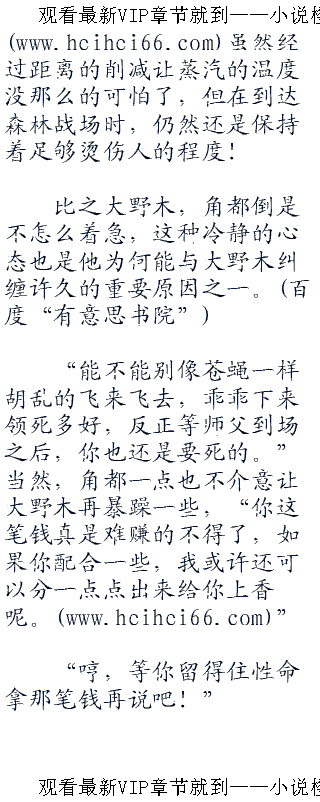 观看最新VIP章节就到——小说检
(www.hcihci66.com)虽然经
过距离的削减让蒸汽的温度
没那么的可怕了，但在到达
森林战场时，仍然还是保持
着足够烫伤人的程度！
比之大野木，角都倒是
不怎么着急，这种冷静的心
态也是他为何能与大野木纠
缠许久的重要原因之一。(百
度“有意思书院”)
“能不能别像苍蝇一样
胡乱的飞来飞去，乖乖下来
领死多好，反正等师父到场
之后，你也还是要死的。”
当然，角都一点也不介意让
大野木再暴躁一些，“你这
笔钱真是难赚的不得了，如
果你配合一些，我或许还可
以分一点点出来给你上香
呢。(www.hcihci66.com)”
“哼，等你留得住性命
拿那笔钱再说吧！”
观看最新VIP章节就到——小说检